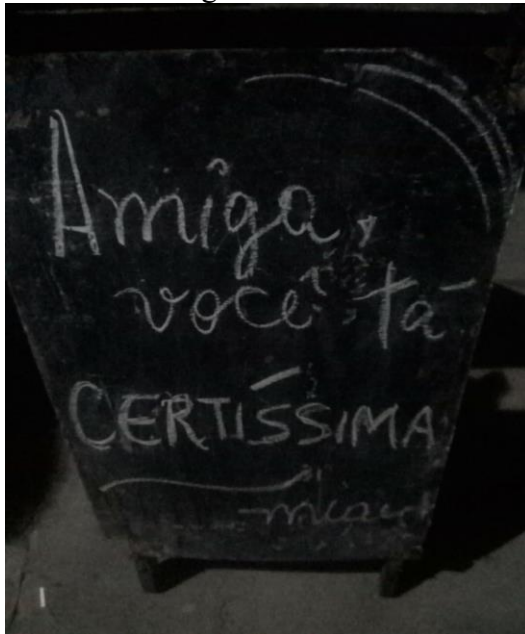 Amiga,
você tá
CERTÍSSIMA